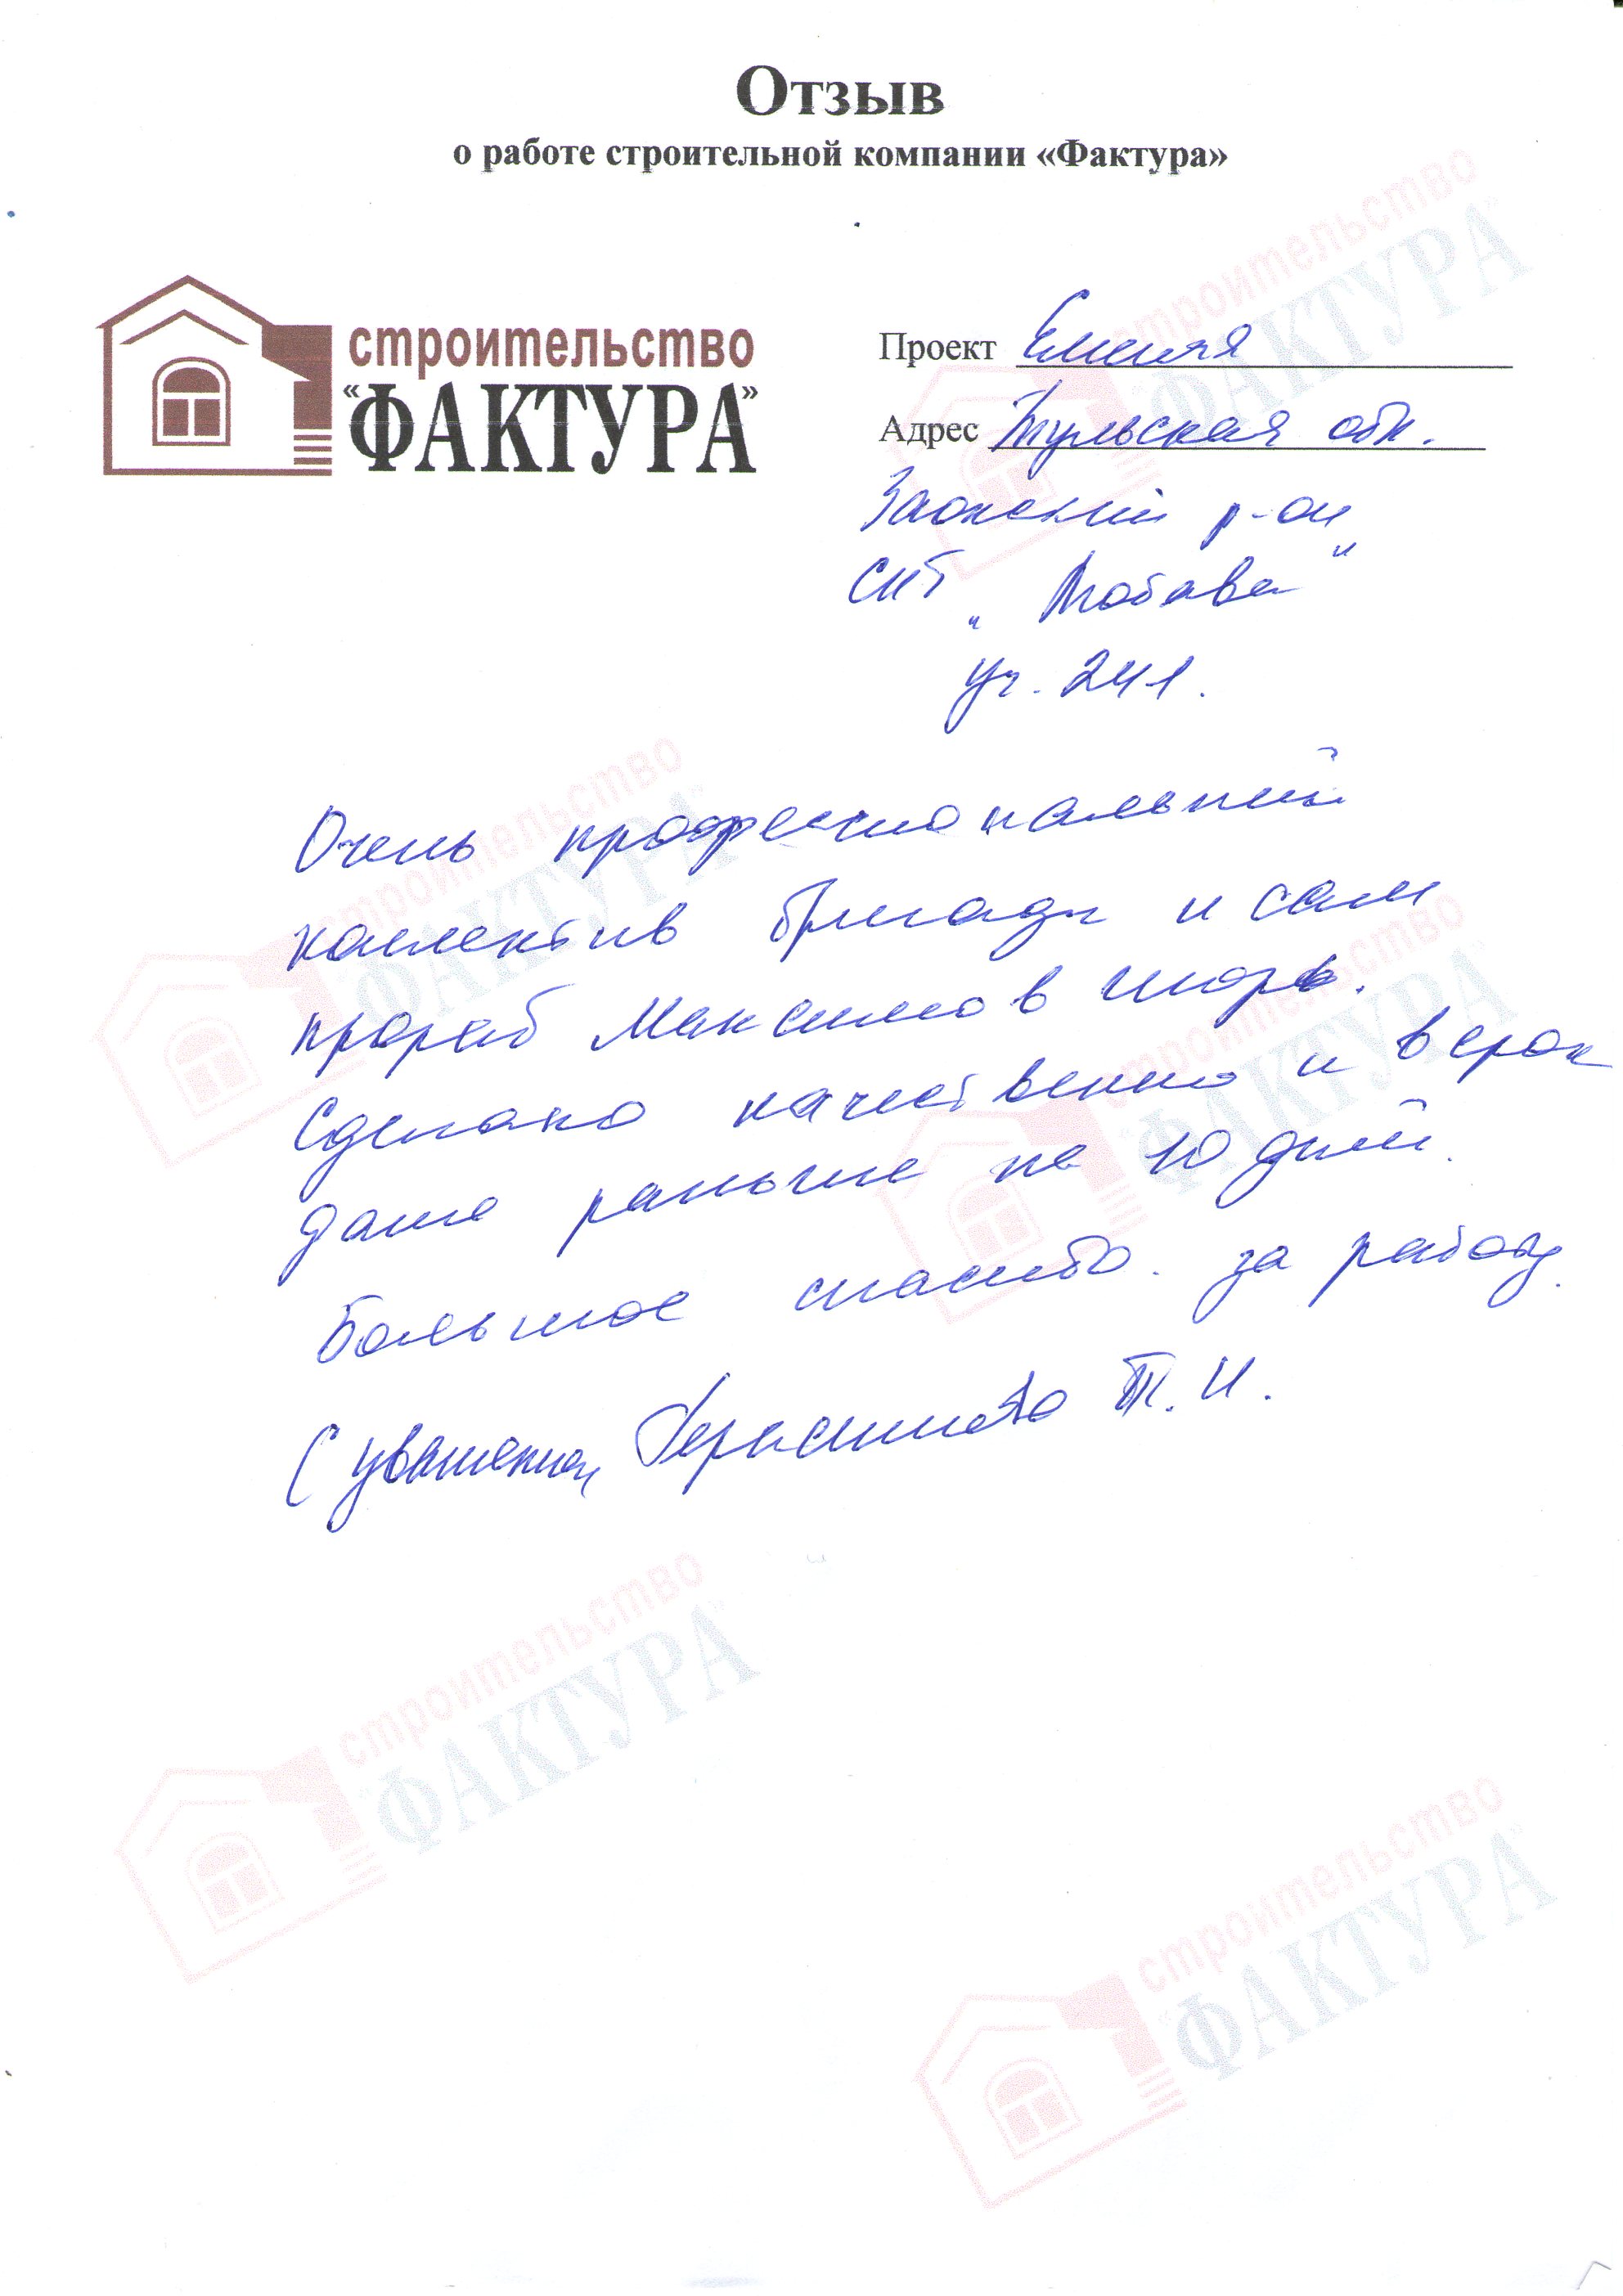 Отзыв
о работе строительной компании «Фактура»
строительство
"ФАКТУРА"
Проект Емеля
Адрес Тульская обл.
Заокский р-он
СНТ
уч. 241.
Очень профессиональный
коллектив бригады и сам
прораб Максимов Игорь.
Сделано качественно и в срок
даже раньше на 10 дней.
Большое спасибо. за работу.
С уважением, Герасимова Т. И.
строительство
"ФАКТУРА"
строительство
"ФАКТУРА"
строительство
"ФАКТУРА"
строительство
"ФАКТУРА"
строительство
"ФАКТУРА"